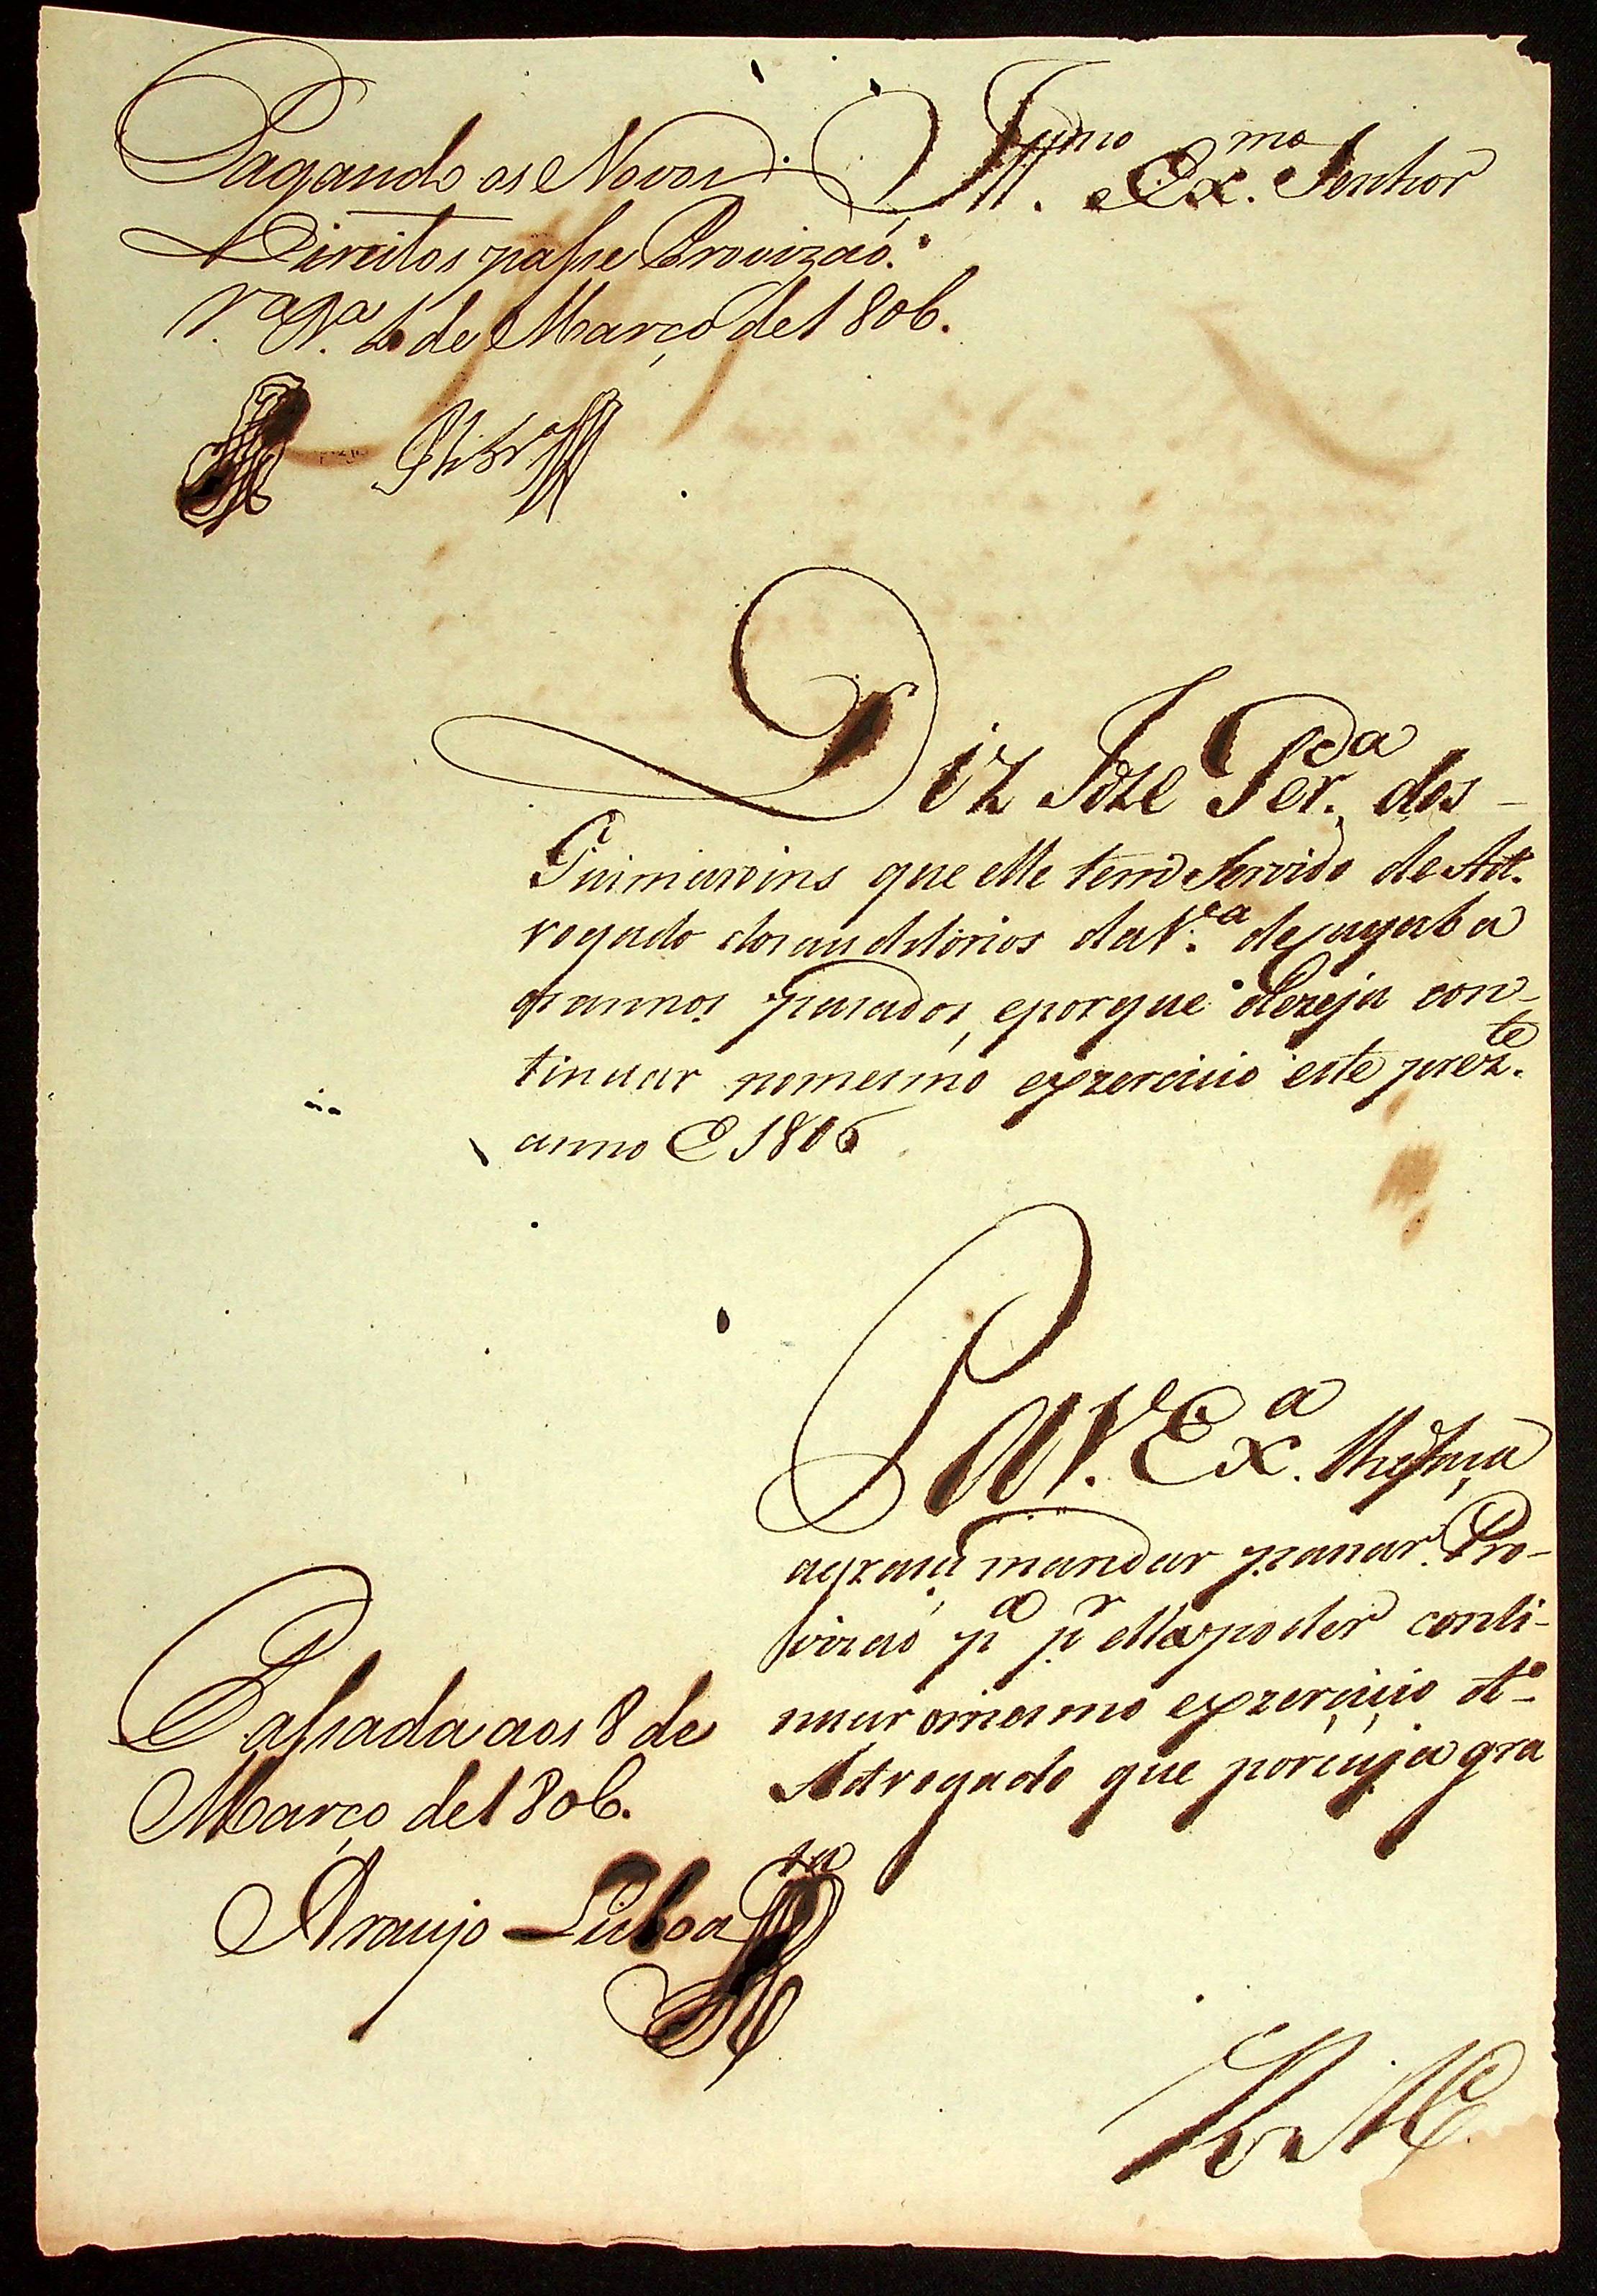 Pagando os Novos
Direitos passe Provizaó.
V.ª B.ª 6 de Março de 1806.
Ill.mo Ex.mo Senhor
Diz Joze Per.ª dos
Guimarains que elle tem Servido de Ad-
vogado dos auditorios da V.ª de
annos pasados, eporque dezeja con-
tinuar nomesmo exzercicio este prez.te
anno de 1806
P a V. Ex.ª lhe faça
agraça mandar pasar Pro-
vizaó p.ª p.r ella poder conti-
nuar omesmo exzerciçio d-
Advogado que porcuja gra
E R M.ce
Passada aos 8 de
Março de 1806.
Araujo Lisboa